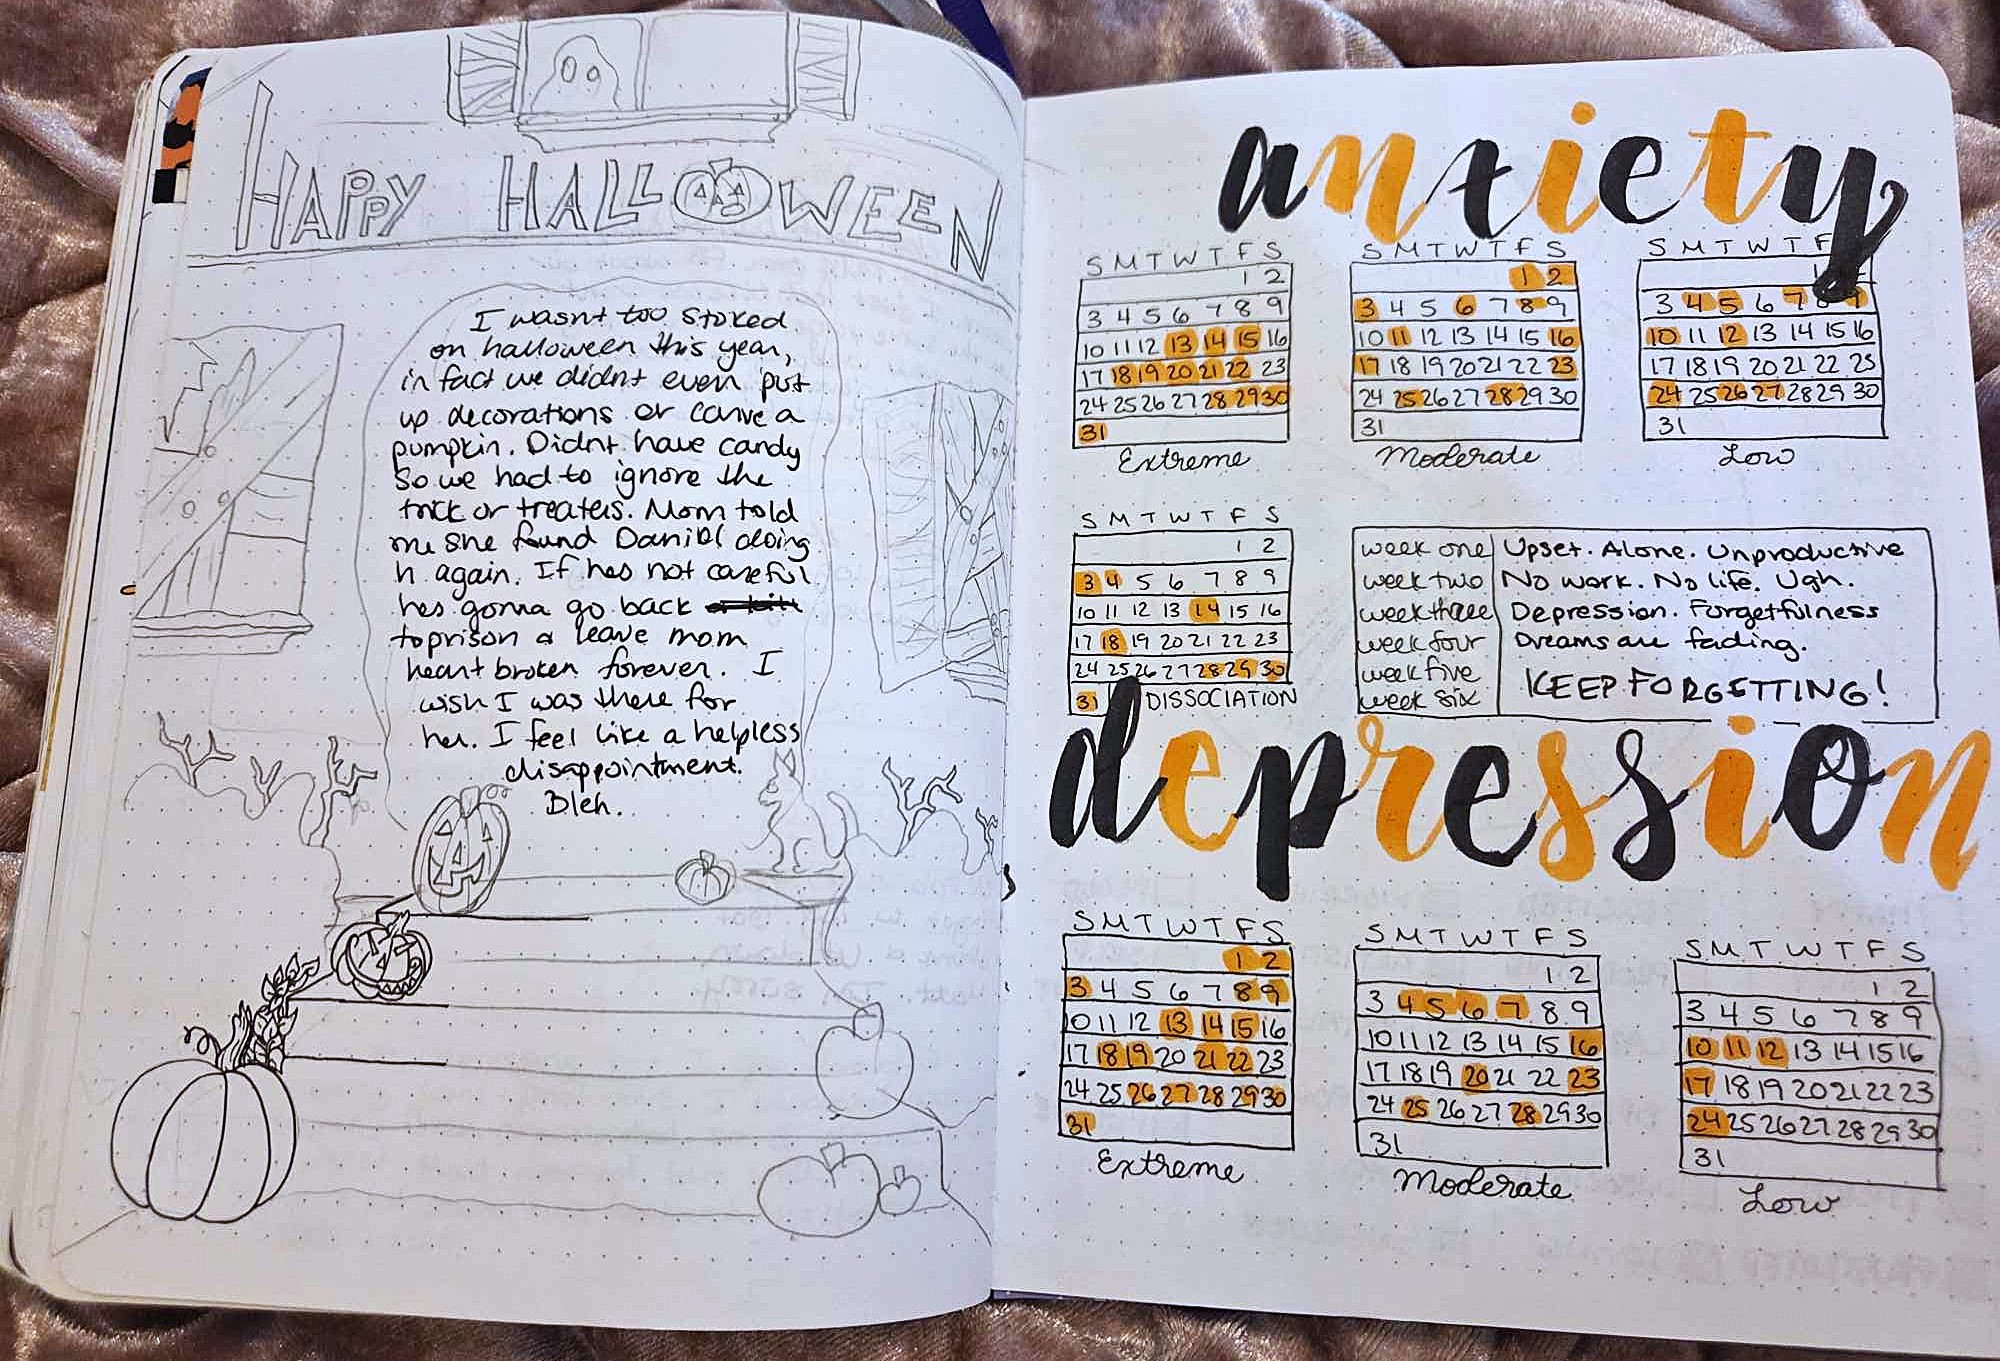 HAPPY HALLOWEEN
I wasnt too stoked
on halloween this year,
in fact we didnt even put
up decorations or carve a
pumpkin. Didnt have candy
So we had to ignore the
trick or treaters. Mom told
me she found Daniel doing
h again. If hes not careful
hes gonna go back
to prison & leave mom
heart broken forever. I
wish I was there for
her. I feel like a helpless
disappointment.
Bleh.
anxiety
S M T W T F S
1 2
3 4 5 6 7 8 9
10 11 12 13 14 15 16
17 18 19 20 21 22 23
24 25 26 27 28 29 30
31
Extreme
S M T W T F S
1 2
3 4 5 6 7 8 9
10 11 12 13 14 15 16
17 18 19 20 21 22 23
24 25 26 27 28 29 30
31
Moderate
S M T W T F
1
3 4 5 6 7 8 9
10 11 12 13 14 15 16
17 18 19 20 21 22 23
24 25 26 27 28 29 30
31
Low
S M T W T F S
1 2
3 4 5 6 7 8 9
10 11 12 13 14 15 16
17 18 19 20 21 22 23
24 25 26 27 28 29 30
31 DISSOCIATION
week one Upset. Alone. Unproductive
week two No work. No life. Ugh.
week three Depression. Forgetfulness
week four Dreams are fading.
week five KEEP FORGETTING!
week six
depression
S M T W T F S
1 2
3 4 5 6 7 8 9
10 11 12 13 14 15 16
17 18 19 20 21 22 23
24 25 26 27 28 29 30
31
Extreme
S M T W T F S
1 2
3 4 5 6 7 8 9
10 11 12 13 14 15 16
17 18 19 20 21 22 23
24 25 26 27 28 29 30
31
Moderate
S M T W T F S
1 2
3 4 5 6 7 8 9
10 11 12 13 14 15 16
17 18 19 20 21 22 23
24 25 26 27 28 29 30
31
Low